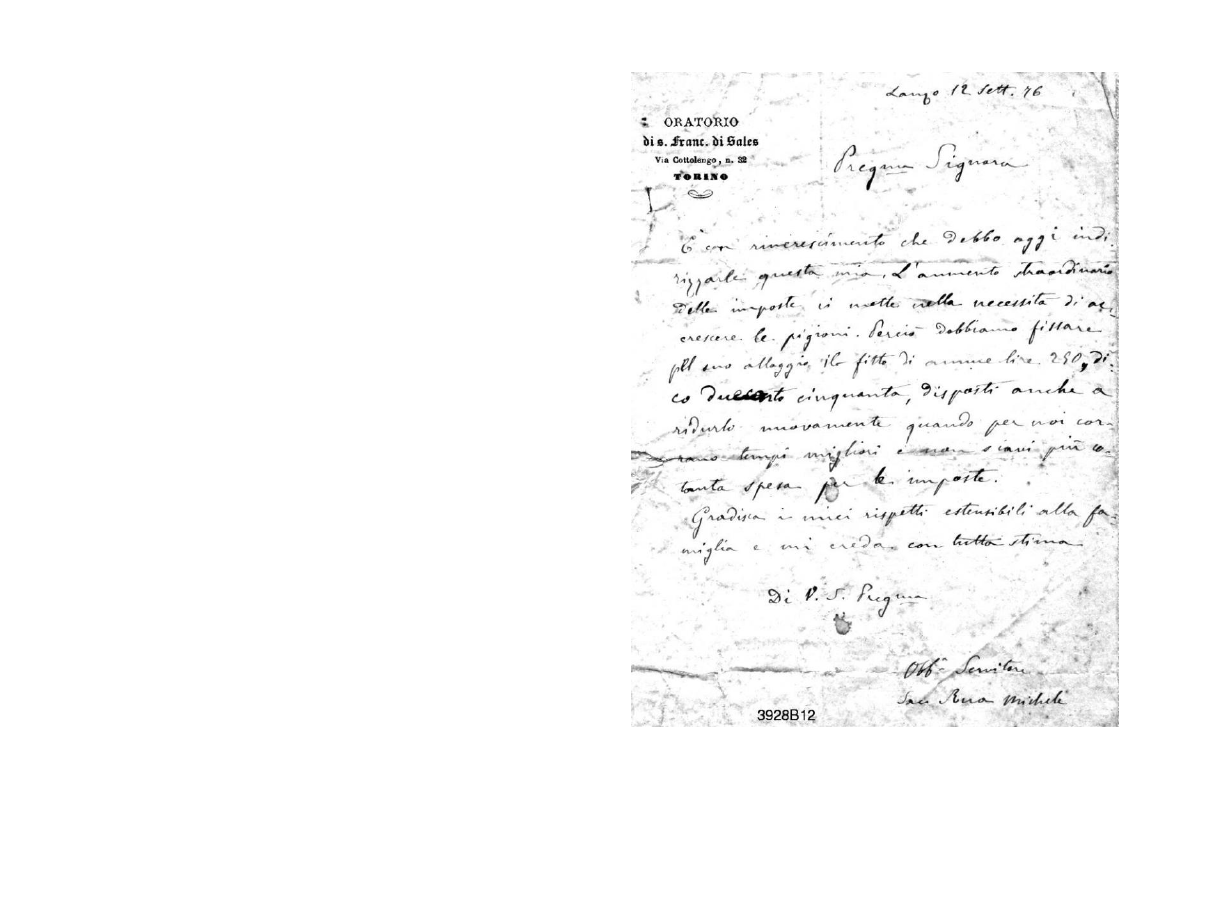 Lanzo 12 Sett. 76
ORATORIO
di s. Franc. di Sales
Via Cottolengo, n. 32
TORINO
Pregma Signora
È con rincrescimento che debbo oggi indi-
rizzarle questa mia. L'aumento straordinario
delle imposte ci mette nella necessità di ac-
crescere le pigioni. Perciò dobbiamo fissare
pel suo alloggio il fitto di annue lire 250, di-
co duecento cinquanta, disposti anche a
ridurlo nuovamente quando per noi cor-
rano tempi migliori e non siavi più co-
tanta spesa per le imposte.
Gradisca i miei rispetti estensibili alla fa-
miglia e mi creda con tutta stima
Di V. S. Pregma
Obbo Servitore
Sac. Rua Michele
3928B12